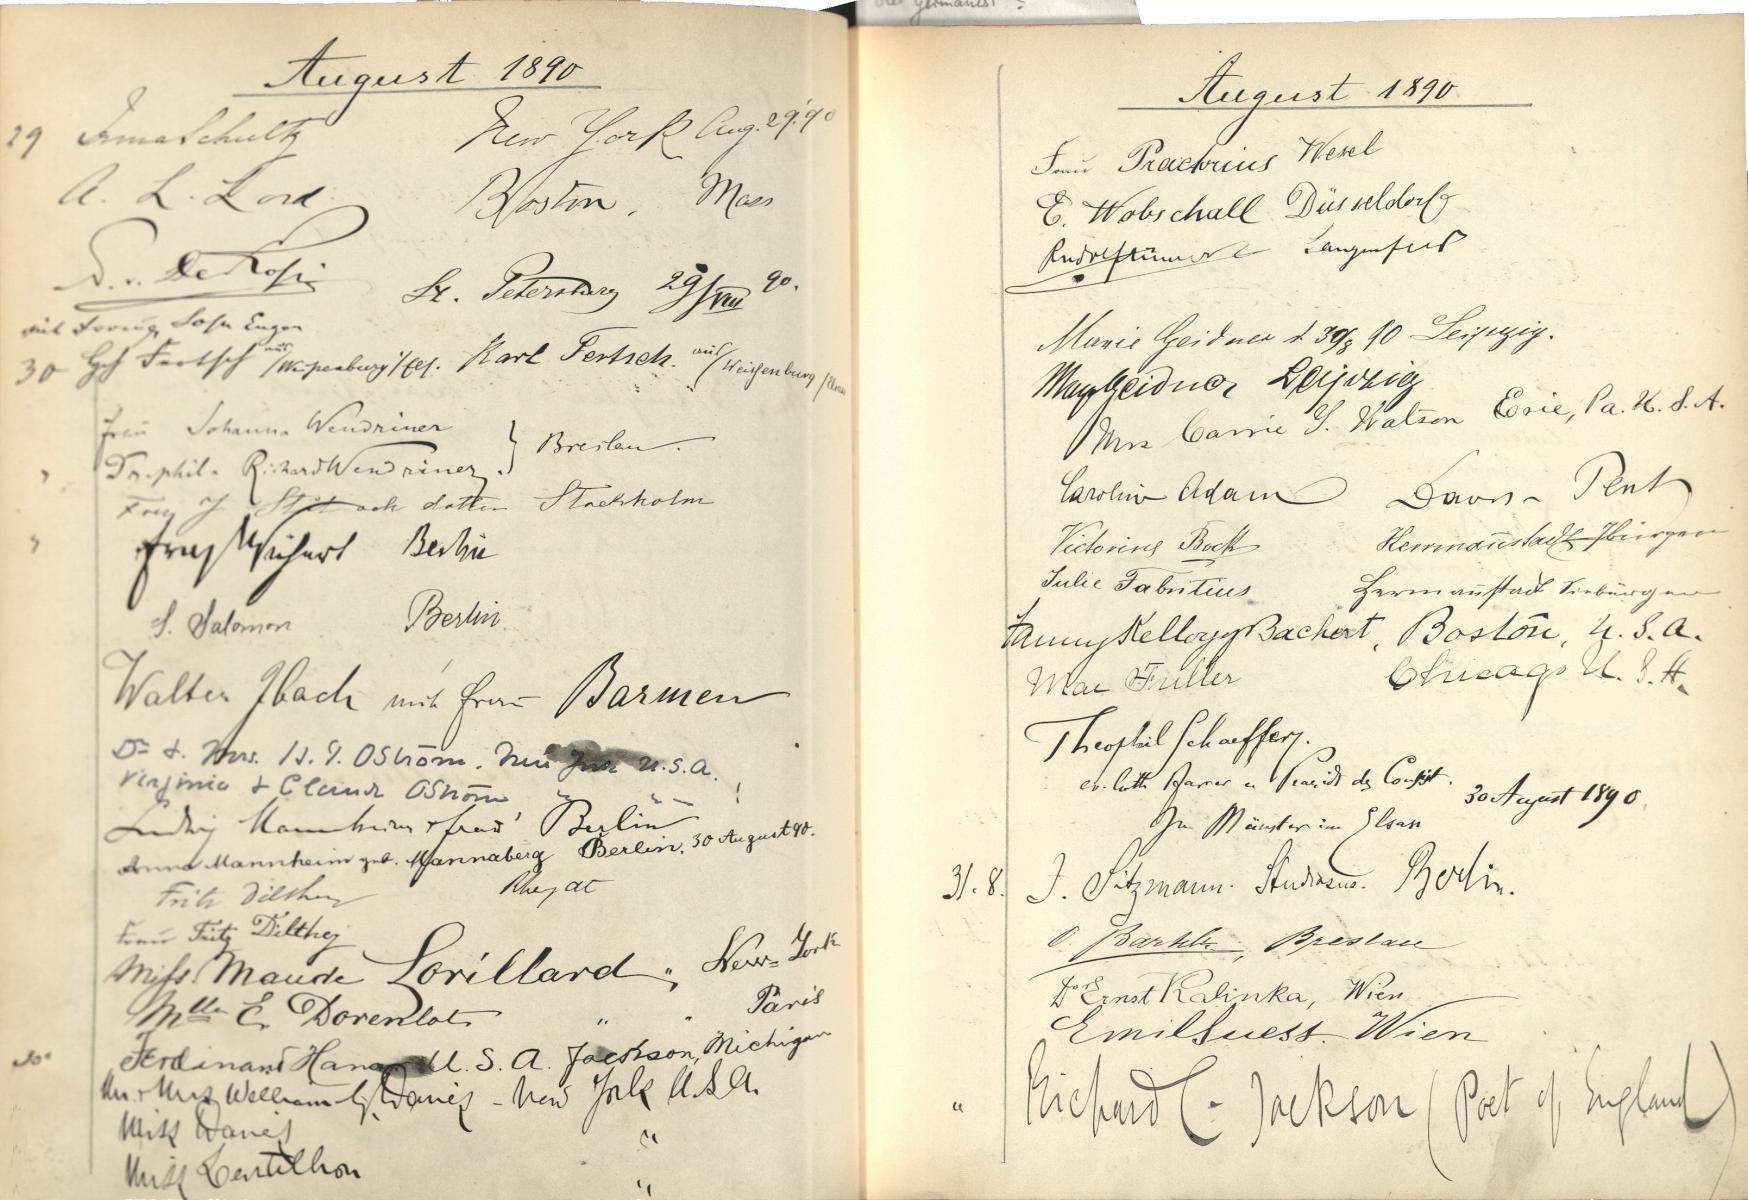 August 1890
29 Irma Schultz New York Aug. 29. 90
A. L. Lord. Boston, Mass
St. Petersburg 29/VIII 90.
30 Karl Fertsch. aus / Weißenburg
Frau Johanna Wendriner } Breslau.
Dr. phil. Richard Wendriner
och dotter Stockholm
Berlin
S. Salomon Berlin
Walter Ibach mit Frau Barmen
Dr & Mrs. H. I. Ostrom. New York U.S.A.
Virginia & Claude Ostrom " " !
Ludwig Mannheim & frau Berlin
Anna Mannheim geb. Mannaberg Berlin, 30 August 90.
Fritz Dilthey Rheydt
Frau Fritz Dilthey
Miss. Maude Lorillard " New York
Mlle E. " " Paris
30 Ferdinand U. S. A. Jackson, Michigan
Mr & Mrs William G. Davies - New York U.S.A.
Miss Davies "
Miss Lentilhon "
August 1890
Frau Praetorius Wesel
E. Wobschall Düsseldorf
Langenfeld
Marie Geidner d 30/8 90 Leipzig.
Max Geidner Leipzig
Mrs Carrie T. Watson Erie, Pa. U. S. A.
Caroline Adam
Victorine Bock Hermannstadt
Julie Fabritius Hermannstadt Siebürgen
Fanny Kellogg Bachert, Boston, U. S. A.
Mae Fuller Chicago U. S. A.
Theophil Schaeffer,
ev. luth Pfarrer u. Praesid des Consist.
In Münster im Elsass 30 August 1890.
31. 8. J. Sitzmann. Studiosus. Berlin.
Breslau
Dr Ernst Kalinka, Wien
Emil Suess. Wien
" Richard C. Jackson (Poet of England)